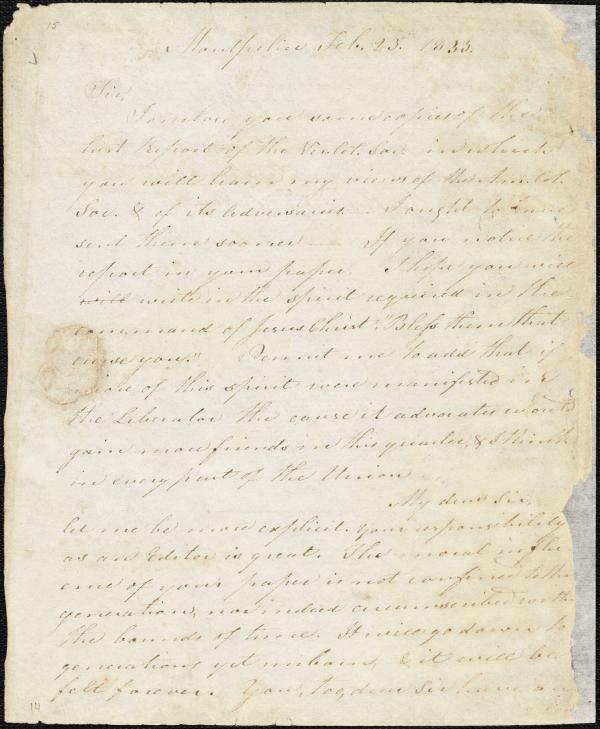 15
Montpelier Feb. 25. 1833.
Sir,
I enclose you some copies of the
last Report of the Vt. Col. Soc. in which
you will learn my views of the Am. Col.
Soc. & of its Adversaries. I ought to have
sent them sooner. If you notice the
report in your paper, I hope you will
will write in the spirit required in the
command of Jesus Christ. "Bless them that
curse you." Permit me to add that if
more of this spirit were manifested in
the Liberator the cause it advocates would
gain more friends in this quarter, & I think
in every part of the Union
My dear Sir,
let me be more explicit. Your responsibility
as an Editor is great. The moral influ
ence of your paper is not confined to this
generation, nor indeed circumscribed with
the bounds of time. It will go down to
generations yet unborn, & it will be
felt forever. You, too, dear Sir have an
14